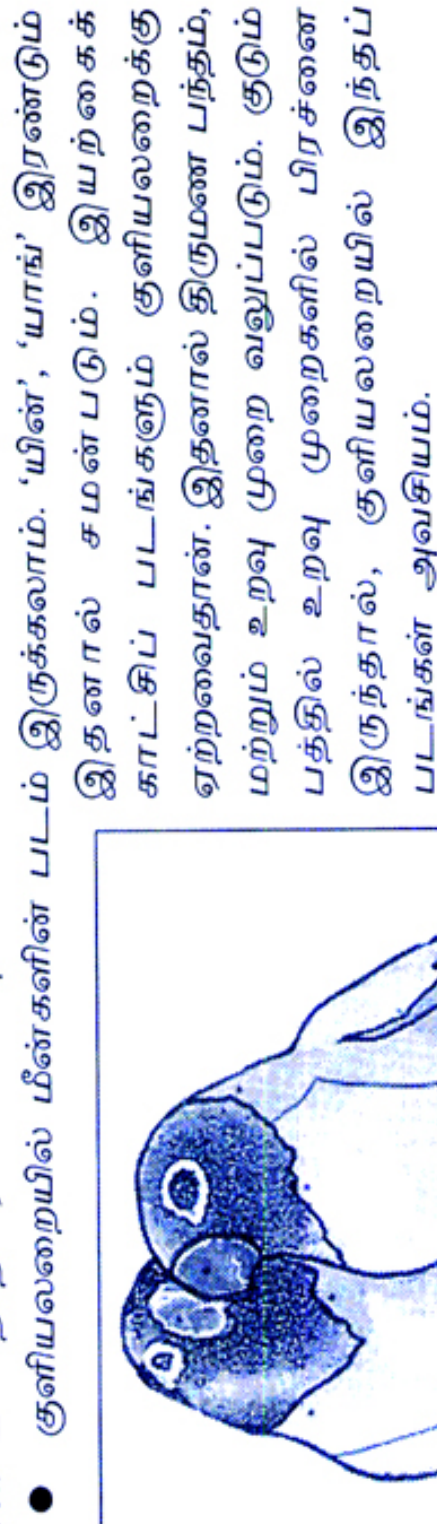 ● குளியலறையில் மீன்களின் படம் இருக்கலாம். ‘யின்’, ‘யாங்’ இரண்டும்
இதனால் சமன்படும். இயற்கைக்
காட்சிப் படங்களும் குளியலறைக்கு
ஏற்றவைதான். இதனால் திருமண பந்தம்,
மற்றும் உறவு முறை வலுப்படும். குடும்
பத்தில் உறவு முறைகளில் பிரச்னை
இருந்தால், குளியலறையில் இந்தப்
படங்கள் அவசியம்.